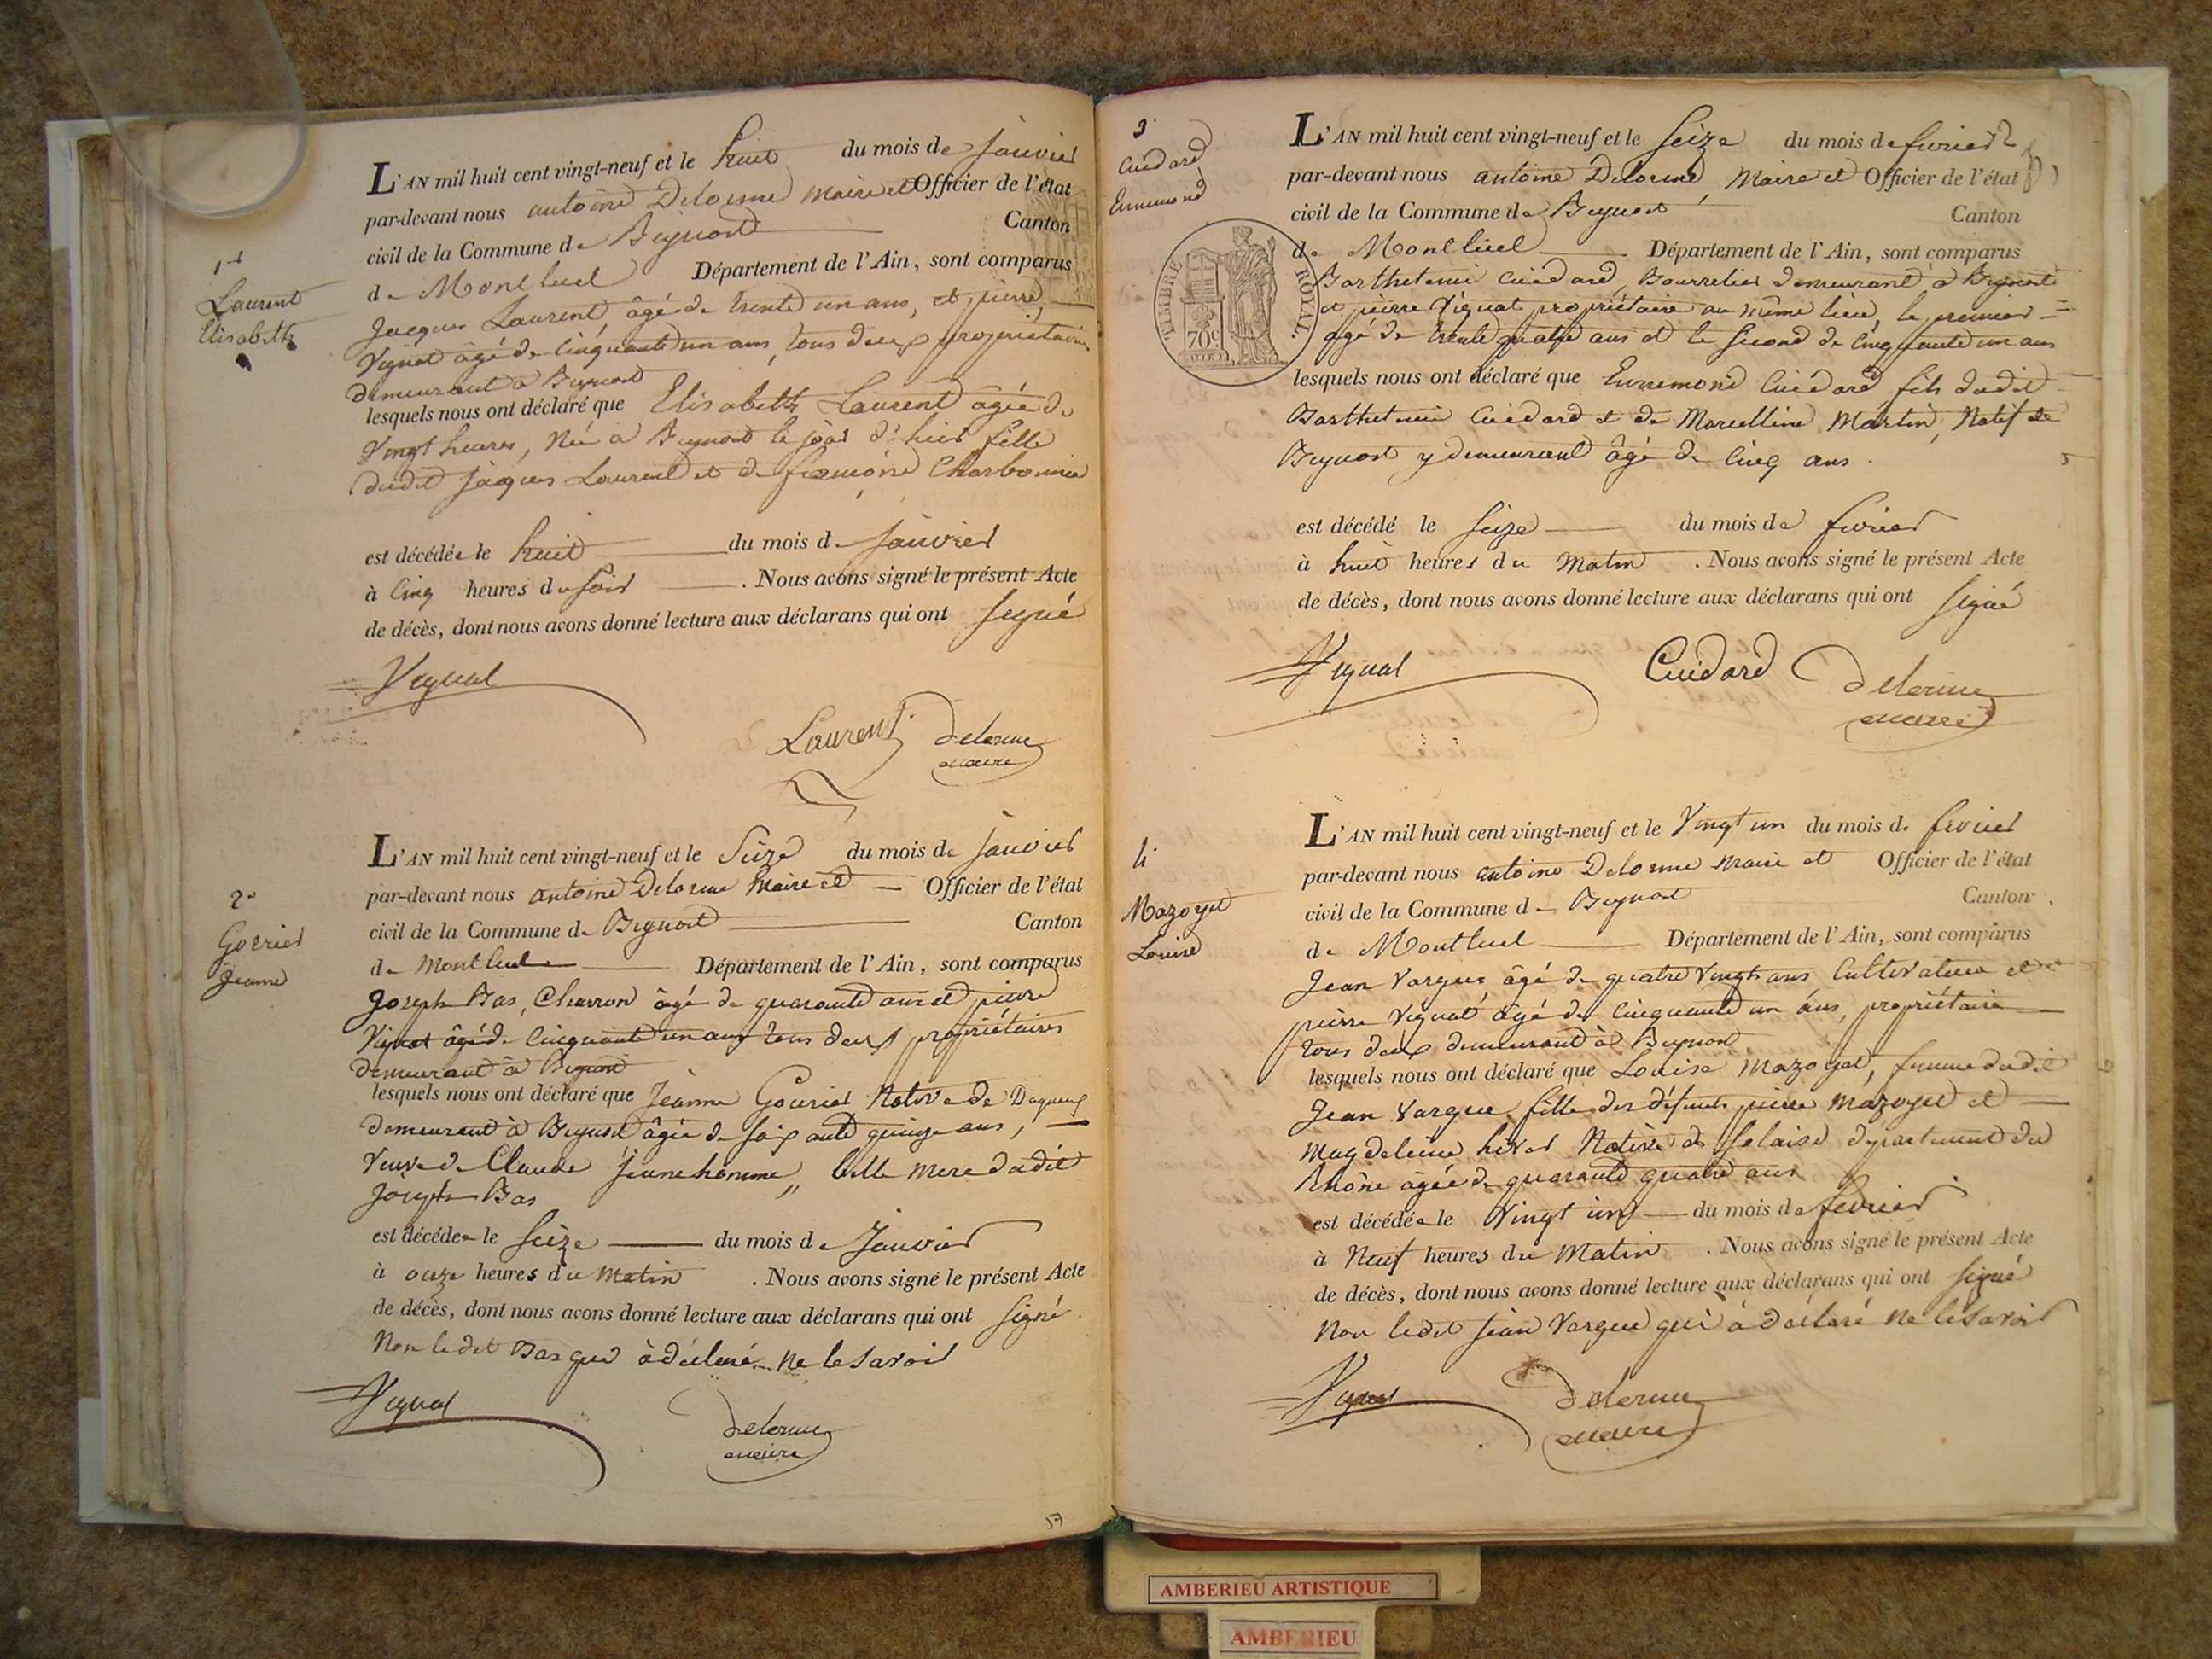 1er
Laurent
Elisabeth
L'AN mil huit cent vingt-neuf et le huit du mois de janvier
par-devant nous antoine Delorme maire et Officier de l'état
civil de la Commune de Beynost Canton
de Montluel Département de l'Ain, sont comparus
Jacques Laurent, âgé de trente un ans, et pierre
Vignat âgé de Cinquante un ans, tous deux propriétaires
demeurant à Beynost
lesquels nous ont déclaré que Elisabeth Laurent âgée de
Vingt heures, Née à Beynost le jour d'hier fille
dudit jacques Laurent et de Charbonnier
est décédée le huit du mois de janvier
à Cinq heures du soir . Nous avons signé le présent Acte
de décès, dont nous avons donné lecture aux déclarans qui ont signé
Vignat
Laurent delorme
maire
2e
Gorrier
jeanne
L'AN mil huit cent vingt-neuf et le Seize du mois de janvier
par-devant nous antoine Delorme Maire et Officier de l'état
civil de la Commune de Beynost Canton
de Montluel Département de l'Ain, sont comparus
joseph Bas, Charron âgé de quarante ans et pierre
Vignat âgé de Cinquante un ans tous deux propriétaires
demeurant à Beynost
lesquels nous ont déclaré que jeanne Native de Dagneux
demeurant à Beynost âgée de soixante quinze ans,
Veuve de Claude jeunehomme, belle mere dudit
joseph Bas
est décédée le Seize du mois de janvier
à onze heures du matin . Nous avons signé le présent Acte
de décès, dont nous avons donné lecture aux déclarans qui ont signé
Non ledit Bas qui à déclaré ne le savoir
Vignat delorme
maire
17
3
Cuidard
Ennemond
TIMBRE ROYAL.
70c
L'AN mil huit cent vingt-neuf et le Seize du mois de fevrier
par-devant nous antoine Delorme Maire et Officier de l'état
civil de la Commune de Beynost Canton
de Montluel Département de l'Ain, sont comparus
Barthelemi Cuidard, Bourrelier demeurant à Beynost
et pierre Vignat propriétaire au même lieu, le premier
agé de trente quatre ans et le second de cinquante un ans
lesquels nous ont déclaré que Ennemond Cuidard, fils dudit
Barthelemi Cuidard et de Marcelline Martin, Natif de
Beynost y demeurant âgé de Cinq ans.
est décédé le seize du mois de fevrier
à huit heures du Matin . Nous avons signé le présent Acte
de décès, dont nous avons donné lecture aux déclarans qui ont signé
Vignat Cuidard delorme
maire
4
Mazoyer
Louise
L'AN mil huit cent vingt-neuf et le Vingt un du mois de fevrier
par-devant nous antoine Delorme maire et Officier de l'état
civil de la Commune de Beynost Canton
de Montluel Département de l'Ain, sont comparus
Jean Vargue âgé de quatre Vingts ans Cultivateur et
pierre Vignat âgé de Cinquante un ans, propriétaire
tous deux demeurant à Beynost
lesquels nous ont déclaré que Louise Mazoyer, femme dudit
Jean Vargue fille des défunts pierre Mazoyer et
Magdeleine Native de département du
Rhône âgée de quarante quatre ans
est décédée le Vingt un du mois de fevrier
à Neuf heures du Matin . Nous avons signé le présent Acte
de décès, dont nous avons donné lecture aux déclarans qui ont signé
Non ledit jean Vargue qui à déclaré ne le savoir
Vignat delorme
maire
AMBERIEU ARTISTIQUE
AMBERIEU